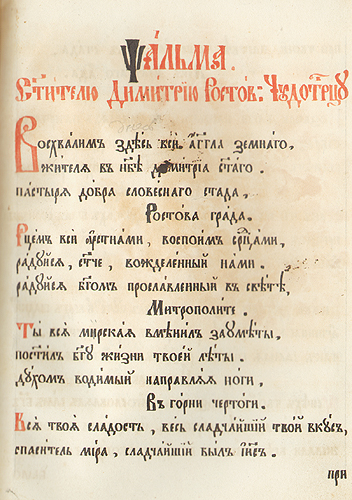 Ѱа́льма.
Ст҃ителю Димитрїю Ростов: Чꙋдотворцꙋ
Восхвалимъ здѣсь вси а҆́гг҃ла земнаго,
жителя въ нб҃ѣ димитрїа ст҃аго.
пастыря добра словеснаго стада,
Ростова града.
Рцемъ вси ᲂустнами, воспоим ср҃цами,
радꙋйся, ст҃че, вожделенный нами.
радꙋйся бг҃омъ прославленный въ свѣтѣ,
Митрополите.
Ты вся мирская вмѣнилъ за ᲂуметы,
постилъ бг҃ꙋ жизни твоей лѣты.
дꙋхомъ водимый направляя ноги,
Въ горни чертоги.
Вся твоя сладость, весь сладчайшїй твой вкꙋсъ,
спаситель мїра, сладчайшїй былъ їи҃съ.
при